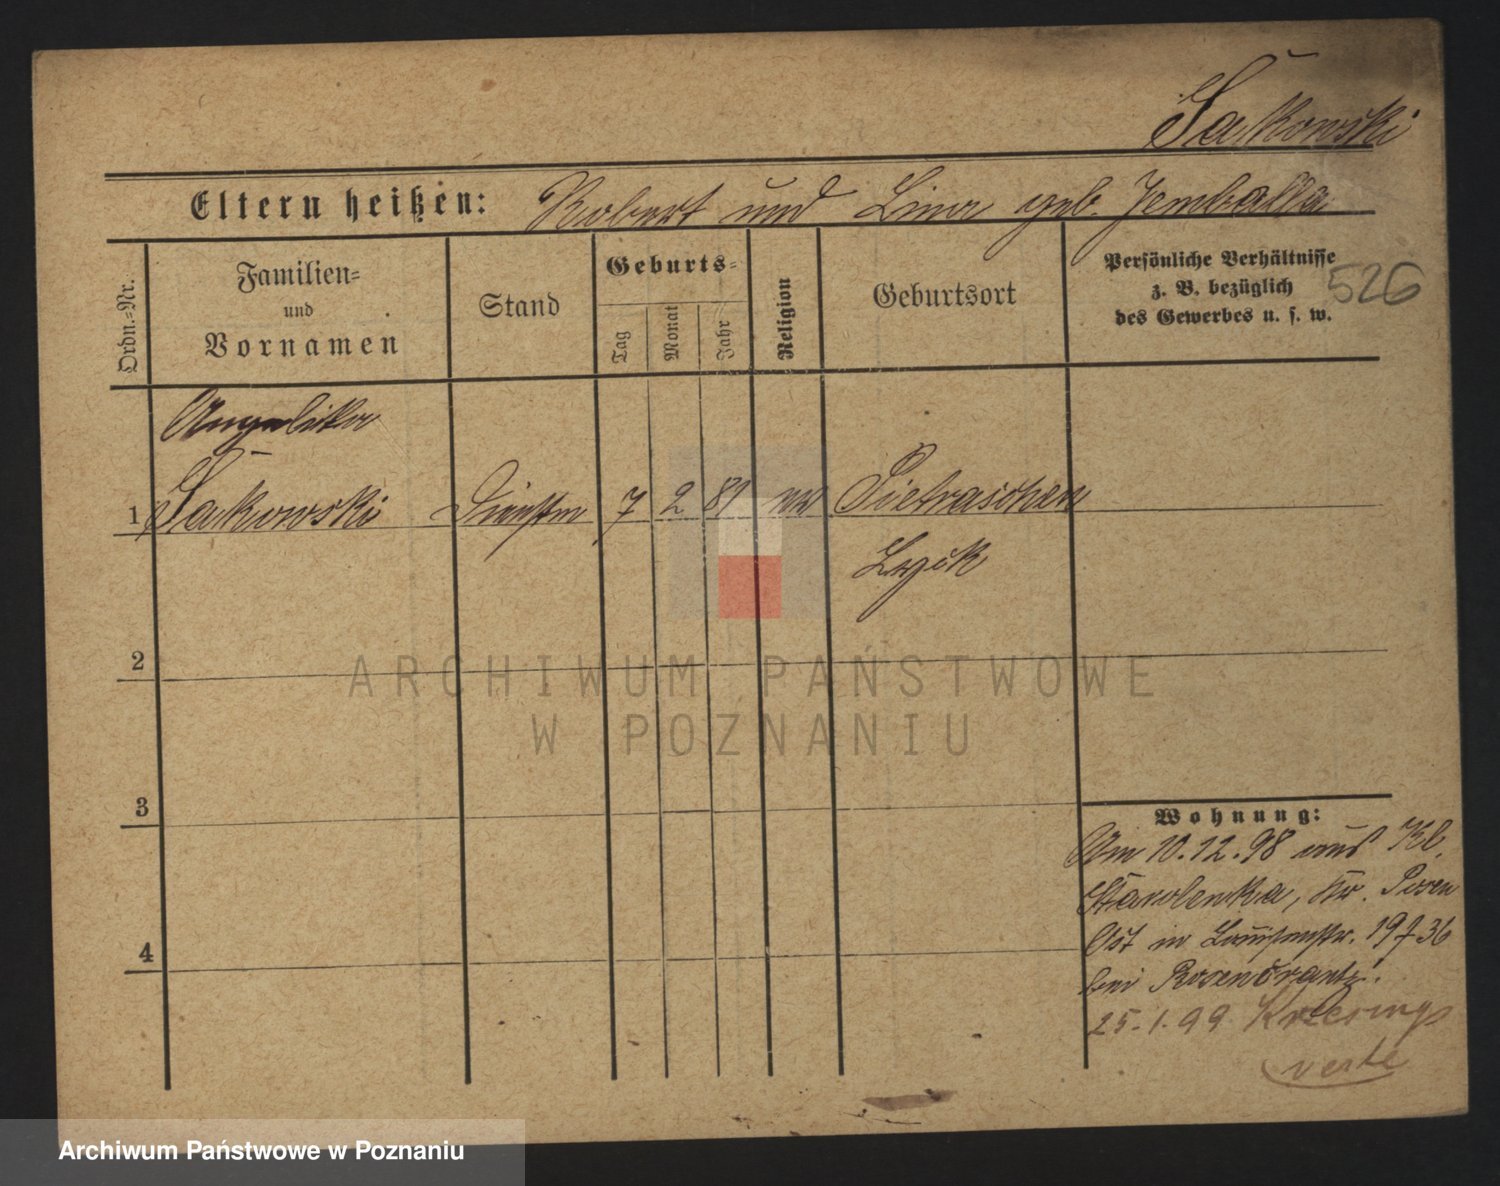 Sakowski
Eltern heißen: Robert und Lina geb. Jemballa
Ordn.-Nr.
Familien-
und
Vornamen
Stand
Geburts-
Tag
Monat
Jahr
Religion
Geburtsort
Persönliche Verhältnisse
z. B. bezüglich
des Gewerbes u. s. w.
526
Angelika
1 Sakowski Dienstm 7 2 81 Pietraschen
Lyck
2
3
4
Wohnung:
Am 10.12.98 aus Kl.
Starolenka, Kr. Posen
Ost in Louisenstr. 19 36
bei Rosenkrantz.
25.1.99
verte
ARCHIWUM PAŃSTWOWE
W POZNANIU
Archiwum Państwowe w Poznaniu